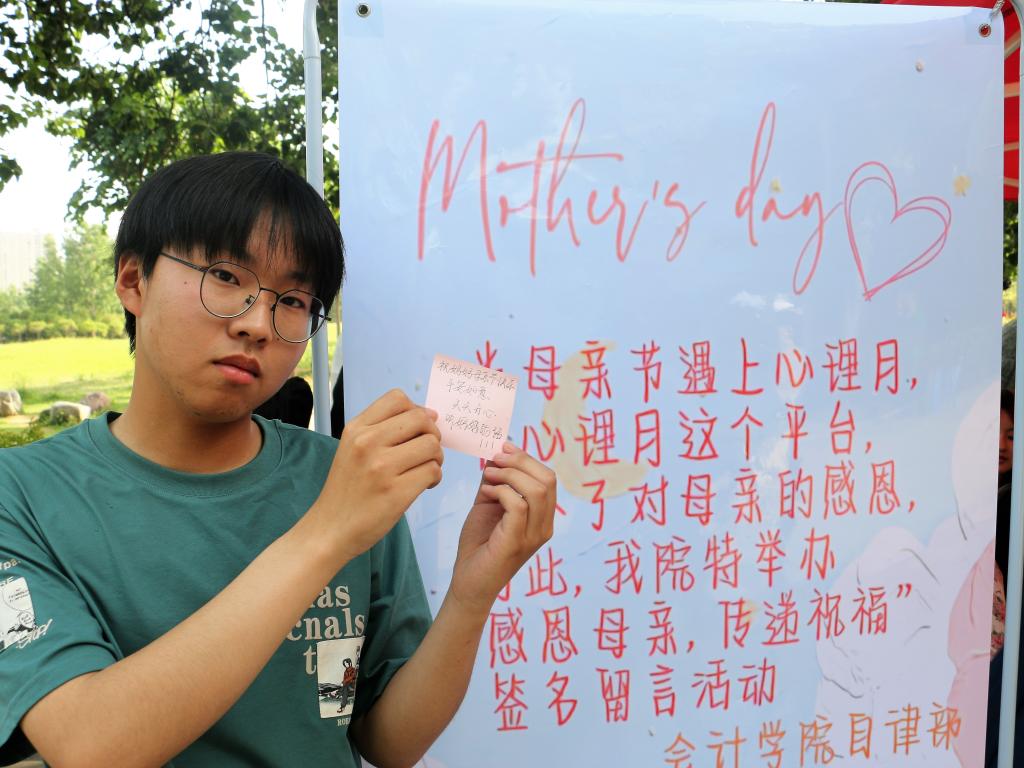 Mother's day
当母亲节遇上心理月,
心理月这个平台,
了对母亲的感恩,
此,我院特举办
感恩母亲,传递祝福”
签名留言活动
会计学院自律部
祝妈妈母亲节快乐
平安如意
天天开心
!!!
nas
cnals
t